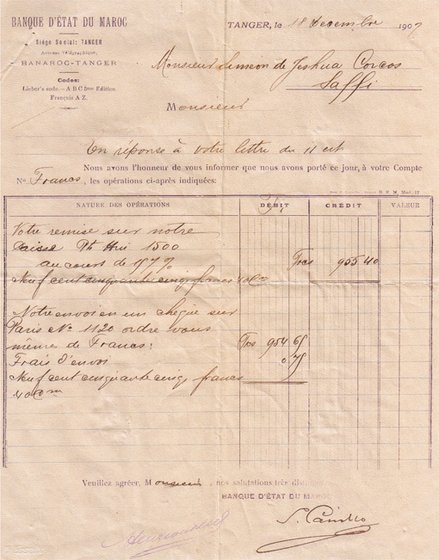 BANQUE D'ÉTAT DU MAROC
Siège Social: TANGER
Adresse Télégraphique:
BANAROC-TANGER
Codes:
Lieber's code.—A B C 5me Edition
Français A Z.
TANGER, le 18 Decembre 1907
Monsieur Simeon de Jeshua Corcos
Saffi
Monsieur
En réponse à votre lettre du 11 crt
Nous avons l'honneur de vous informer que nous avons porté ce jour, à votre Compte
No Francs, les opérations ci-après indiquées:
NATURE DES OPÉRATIONS DÉBIT CRÉDIT VALEUR
Votre remise sur notre
caisse 1500
au cours de 157%
Frcs 955 40
Neuf cent cinquante cinq francs 40
Notre envoi en un chèque sur
Paris No 1120 ordre vous
même de Francs: Frcs 954 65
Frais d'envoi 0.75
Neuf cent cinquante cinq francs
40
Veuillez agréer, Monsieur, nos salutations très
BANQUE D'ÉTAT DU MAROC